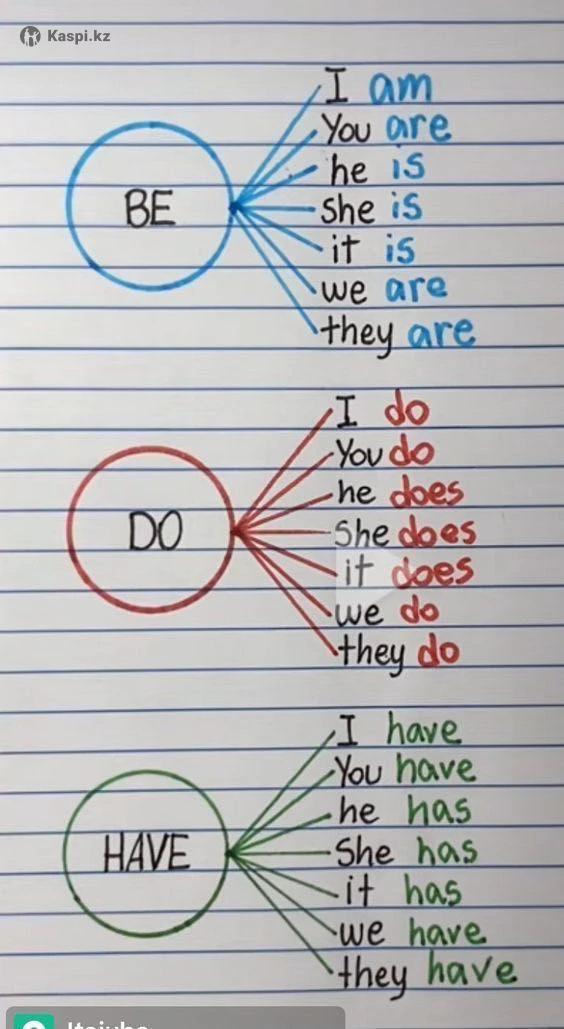 Kaspi.kz
I am
You are
he is
BE
she is
it is
we are
they are
I do
You do
he does
DO
She does
it does
we do
they do
I have
You have
he has
HAVE
She has
it has
we have
they have